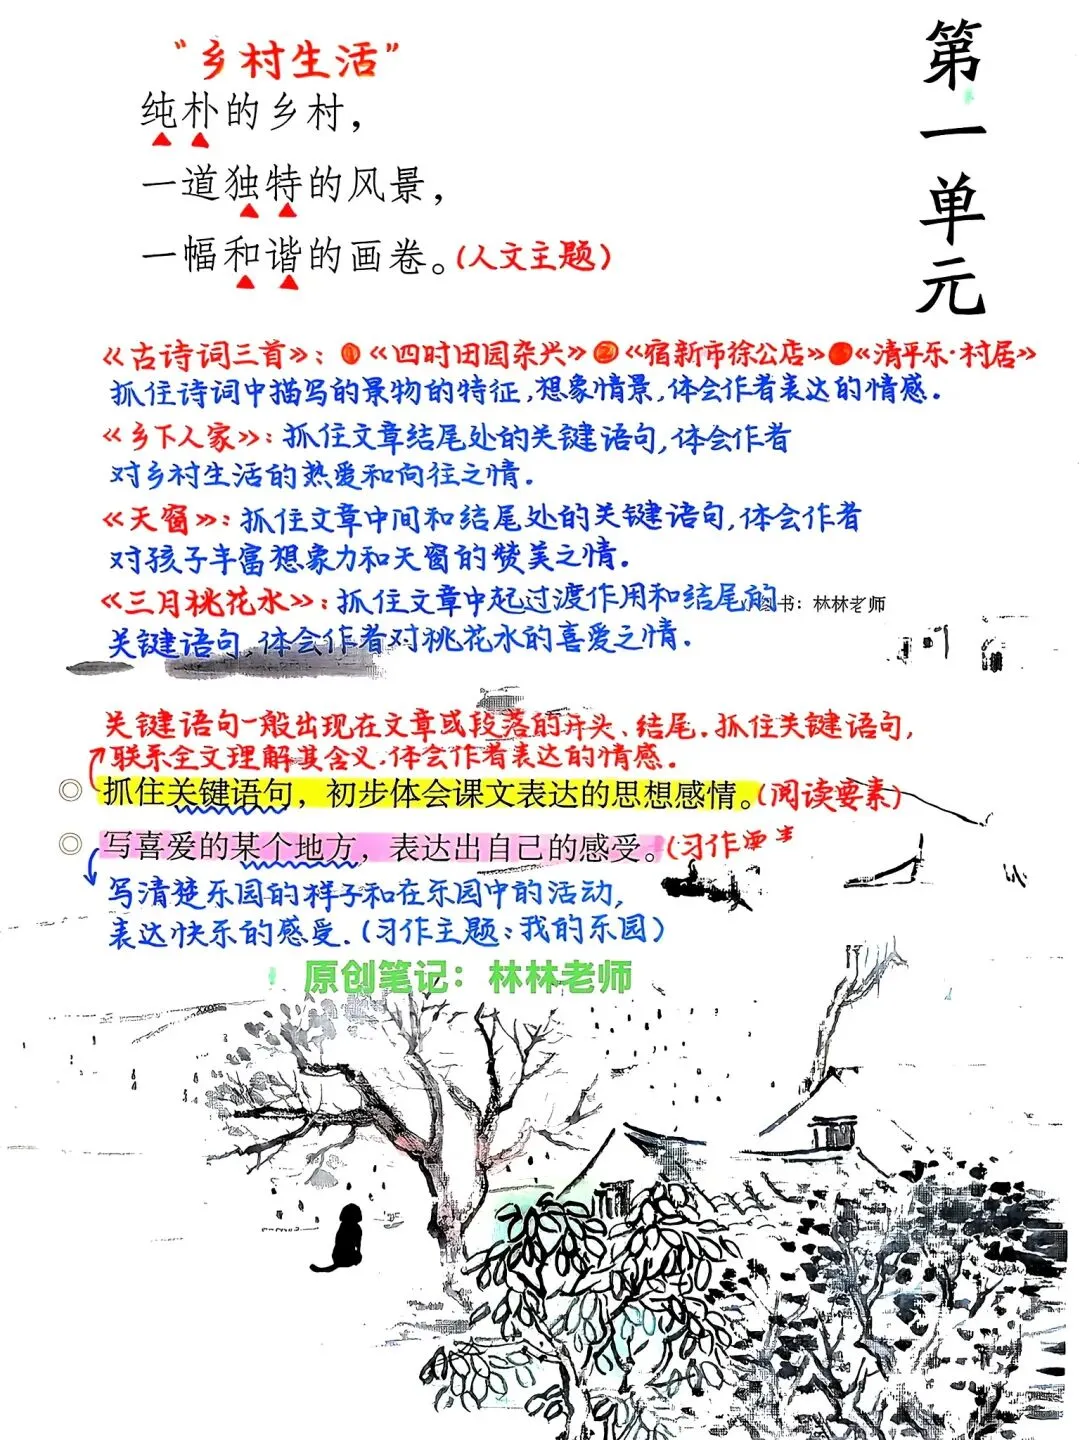 第一单元
“乡村生活”
纯朴的乡村，
一道独特的风景，
一幅和谐的画卷。(人文主题)
《古诗词三首》：①《四时田园杂兴》②《宿新市徐公店》《清平乐·村居》
抓住诗词中描写的景物的特征,想象情景,体会作者表达的情感.
《乡下人家》：抓住文章结尾处的关键语句,体会作者
对乡村生活的热爱和向往之情.
《天窗》：抓住文章中间和结尾处的关键语句,体会作者
对孩子丰富想象力和天窗的赞美之情.
《三月桃花水》：抓住文章中起过渡作用和结尾的
书：林林老师
关键语句,体会作者对桃花水的喜爱之情.
关键语句一般出现在文章或段落的开头、结尾.抓住关键语句,
联系全文理解其含义.体会作者表达的情感.
◎ 抓住关键语句，初步体会课文表达的思想感情。(阅读要素)
◎ 写喜爱的某个地方，表达出自己的感受。(习作要
写清楚乐园的样子和在乐园中的活动,
表达快乐的感受.(习作主题:我的乐园)
原创笔记：林林老师